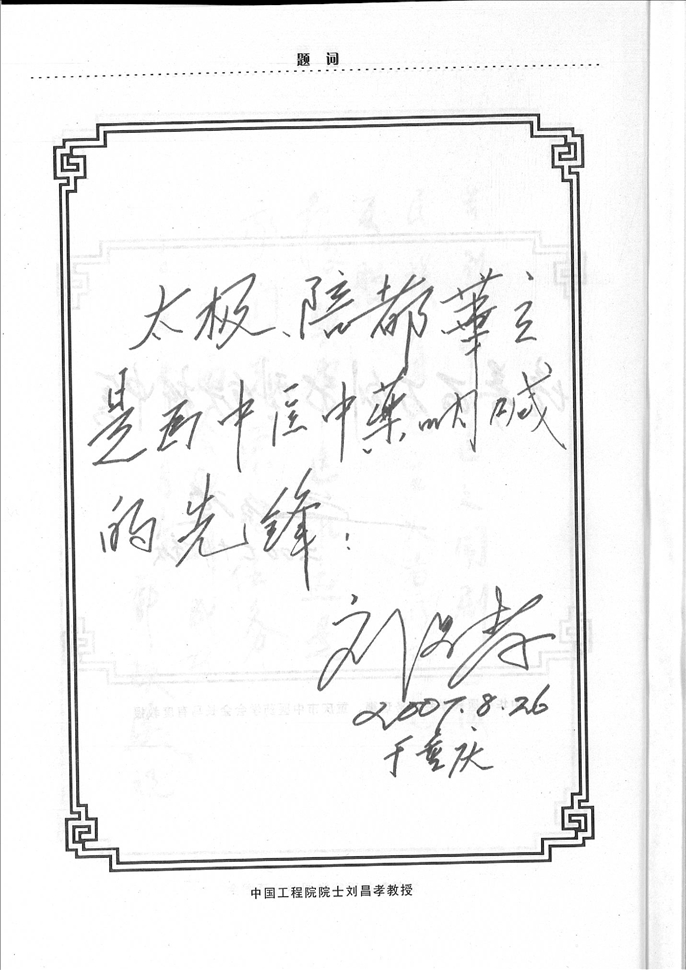 题 词
太极、陪都華立
是为中医中药呐喊
的先锋!
刘昌孝
2007.8.26
于重庆
中国工程院院士刘昌孝教授